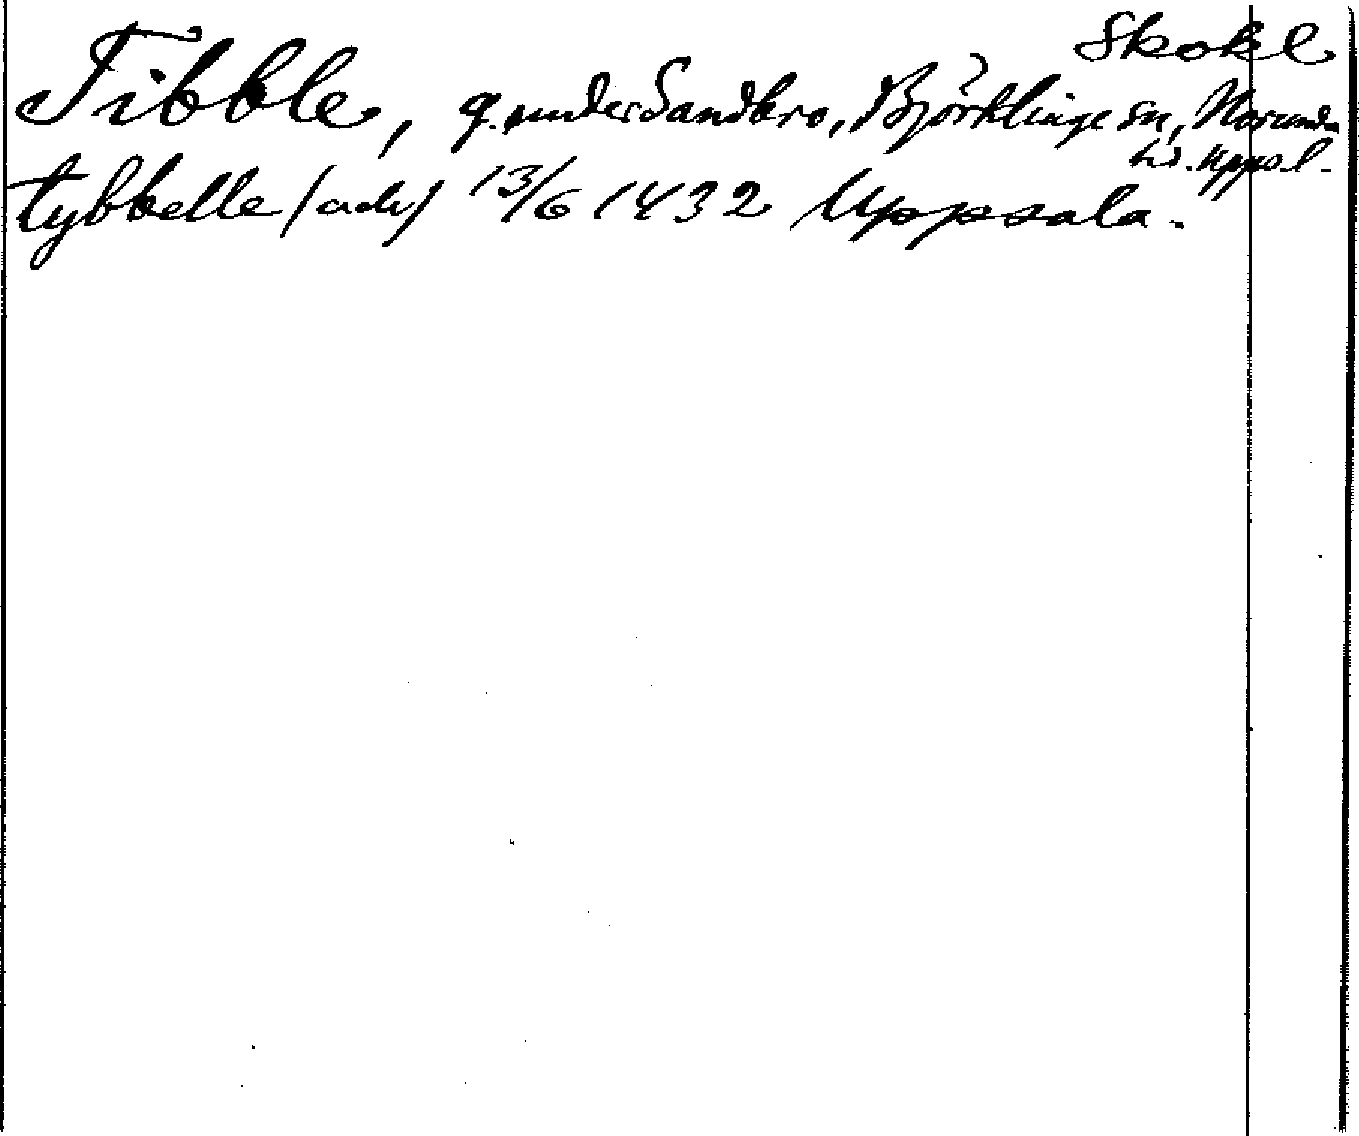 Skokl
Tibble, g. under Sandbro, Björklinge sn, Norunda
hd. Uppsl.
tybbelle (adv) 13/6 1432 Uppsala.